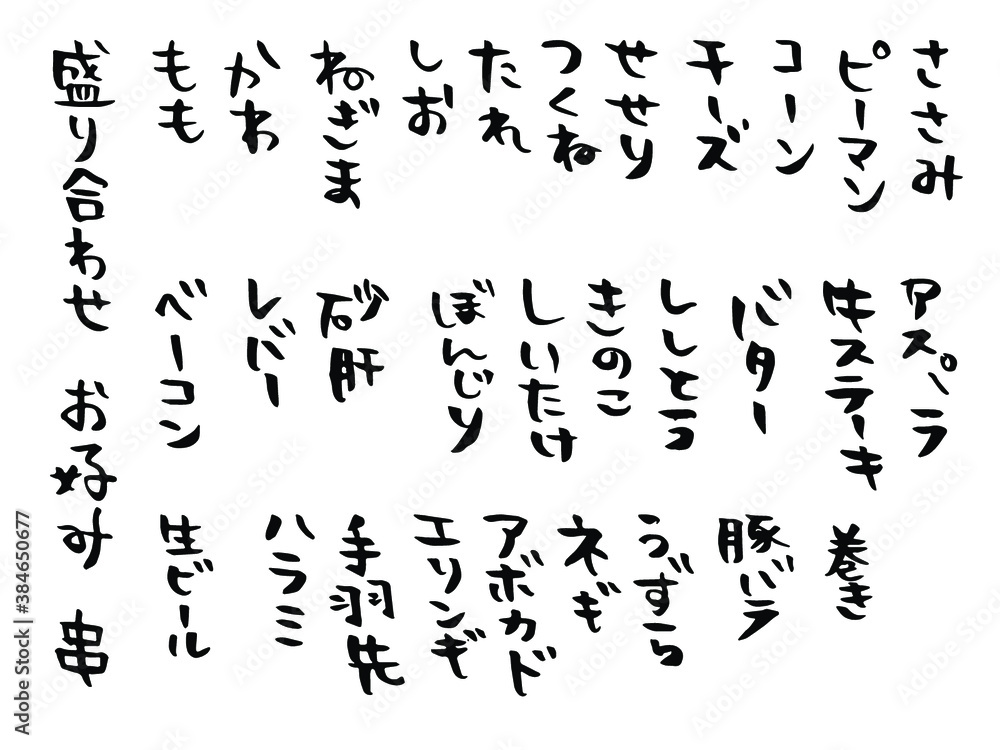 ささみ
ピーマン
コーン
チーズ
せせり
つくね
たれ
しお
ねぎま
かわ
もも
アスパラ
牛ステーキ
バター
ししとう
きのこ
しいたけ
ぼんじり
砂肝
レバー
ベーコン
巻き
豚バラ
うずら
ネギ
アボカド
エリンギ
手羽先
ハラミ
生ビール
盛り合わせ お好み 串
Adobe Stock | #384650677